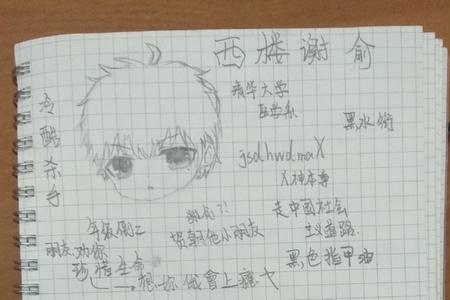 西楼谢俞
清华大学
医学系
黑水街
冷酷杀手
jsdhwdmaX
X神本尊
谢俞?!
贺朝他小朋友
走中国社会
主义道路
黑色指甲油
年级倒二
朋友劝你
珍惜生命
想你俄會上癮